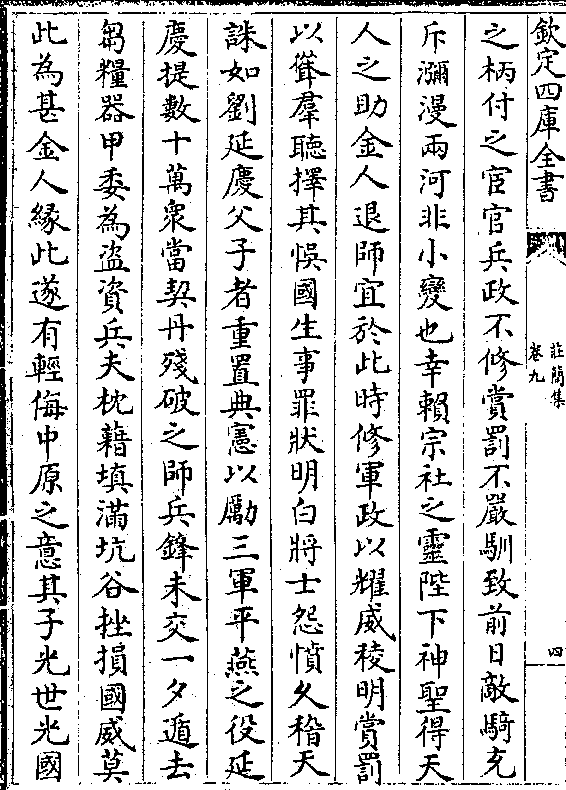 欽定四庫全書
莊簡集
卷九
四
之柄付之宦官兵政不修賞罰不嚴馴致前日敵騎充
斥瀰漫兩河非小變也幸賴宗社之靈陛下神聖得天
人之助金人退師宜於此時修軍政以耀威稜明賞罰
以聳羣聽擇其悞國生事罪狀明白將士怨憤久稽天
誅如劉延慶父子者重置典憲以勵三軍平燕之役延
慶提數十萬衆當契丹殘破之師兵鋒未交一夕遁去
芻糧器甲委為盗資兵夫枕藉填滿坑谷挫損國威莫
此為甚金人緣此遂有輕侮中原之意其子光世光國